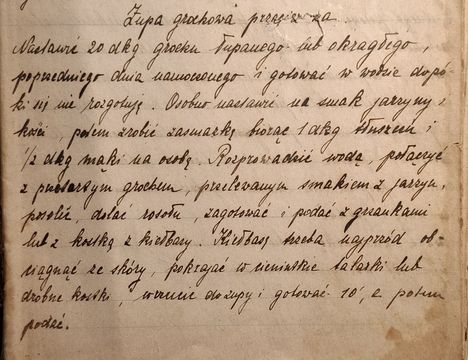 Zupa grochowa
Nastawić 20 dkg grochu łupanego lub okrągłego,
poprzedniego dnia namoczonego i gotować w wodzie dopó-
ki się nie rozgotują. Osobno nastawić na smak jarzyny i
kości, potem zrobić zasmażkę biorąc 1 dkg tłuszczu i
1/2 dkg mąki na osobę. Rozprowadzić wodą, połączyć
z przetartym grochem, przelewanym smakiem z jarzyn,
posolić, dolać rosołu, zagotować i podać z grzankami
lub z kostką z kiełbasy. Kiełbasę trzeba najprzód ob-
ciągnąć ze skóry, pokrajać w cieniutkie talarki lub
drobne kostki, wrzucić do zupy i gotować 10', a potem
podać.